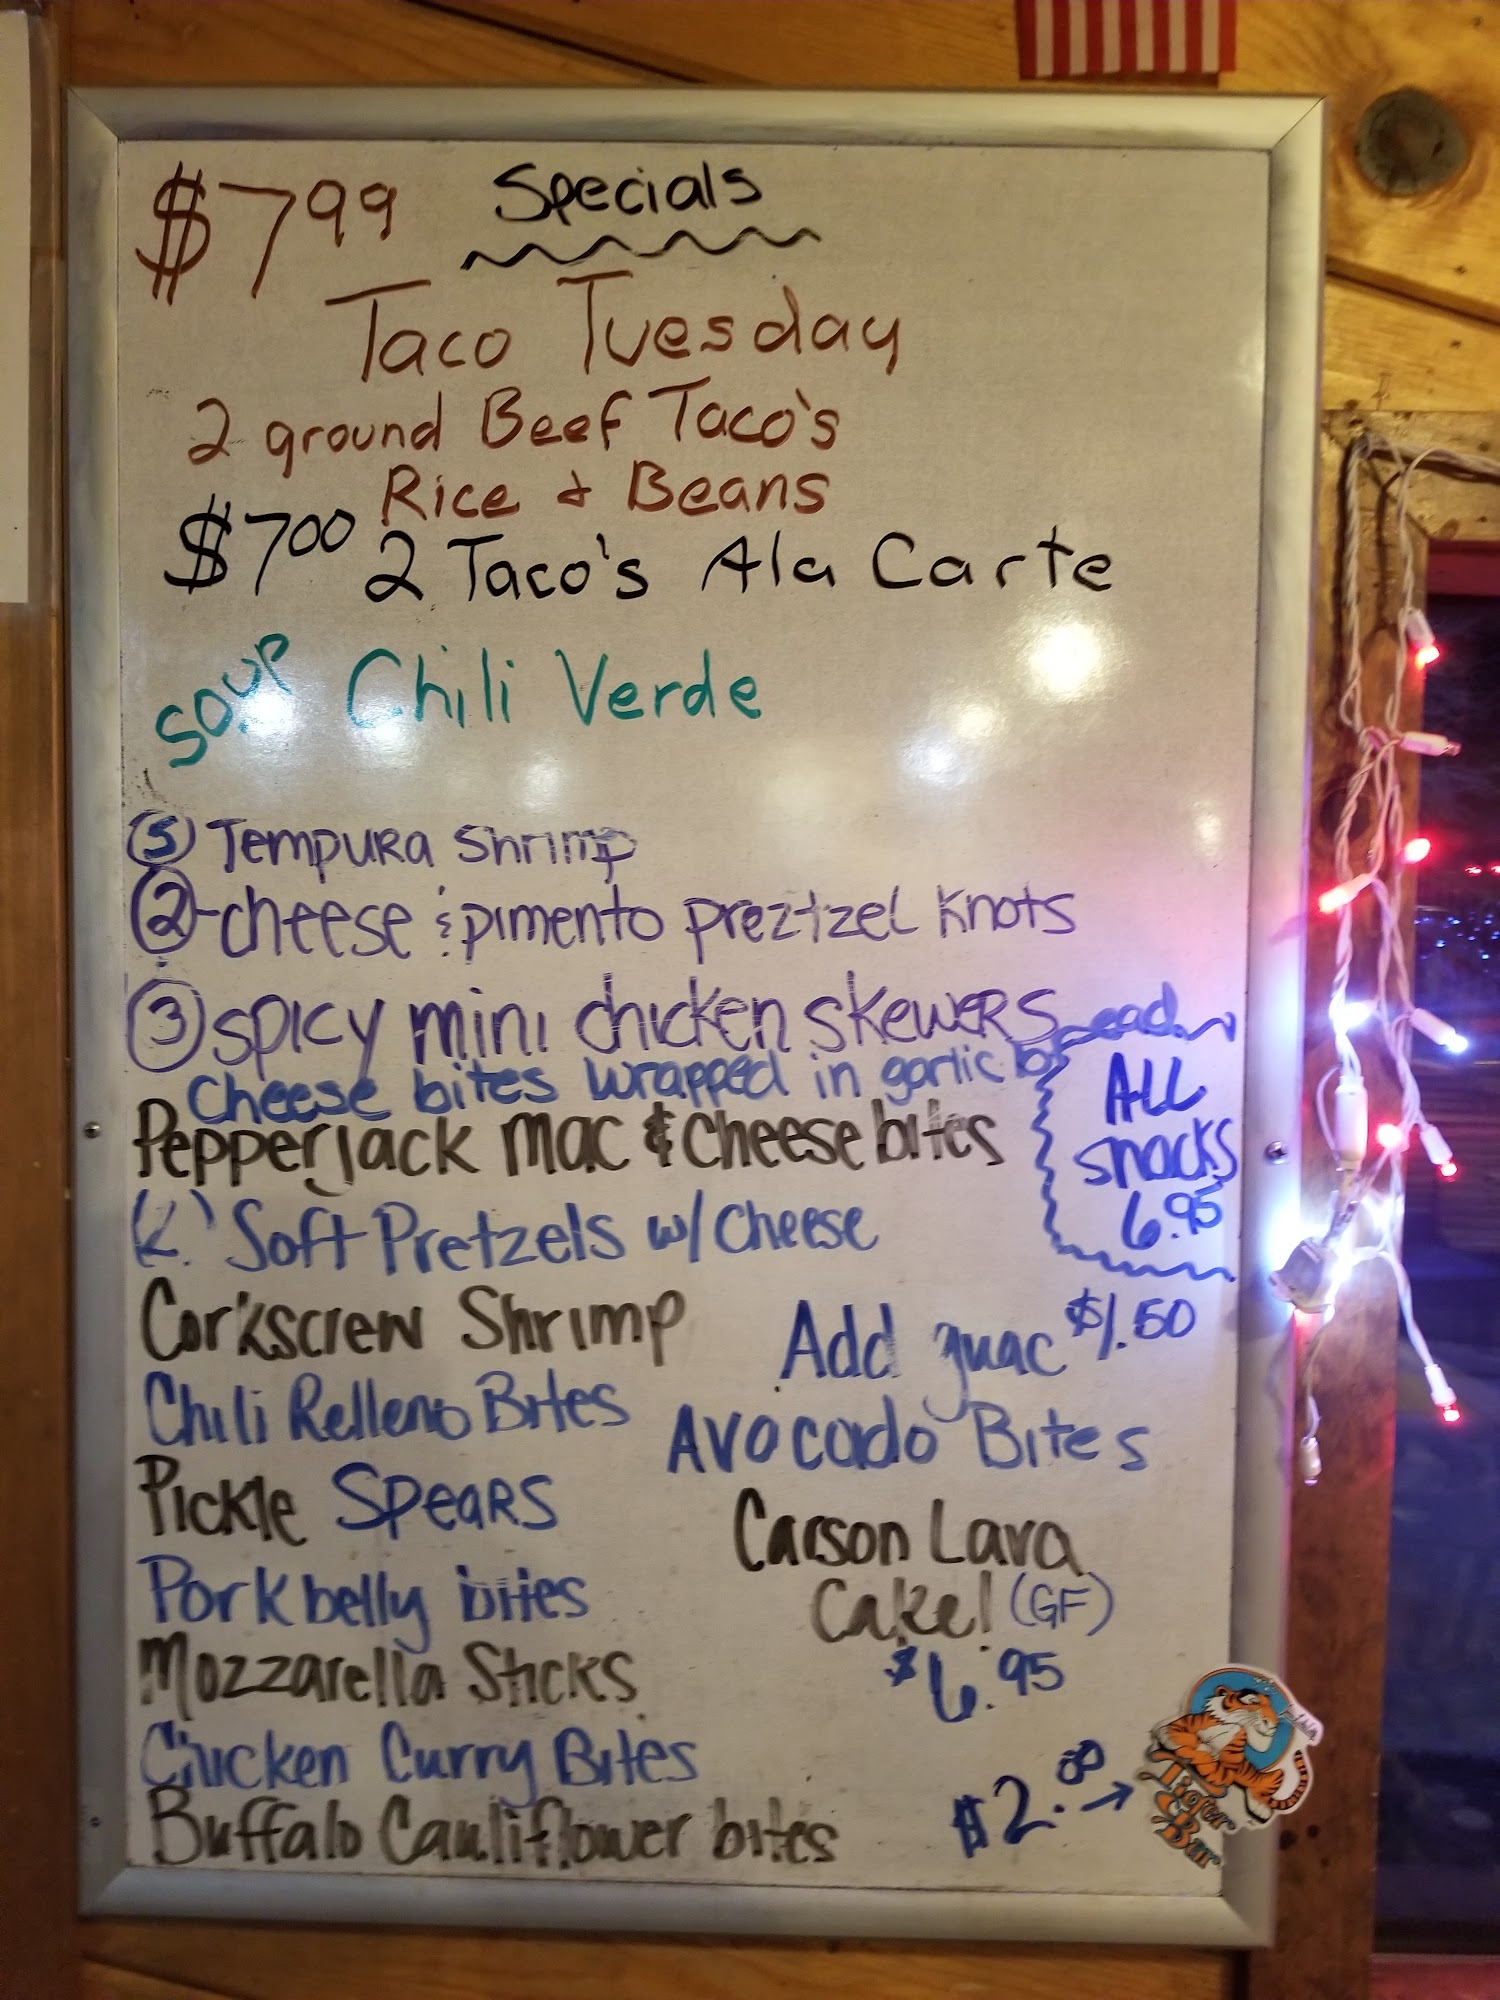 $7.99 Specials
Taco Tuesday
2 ground Beef Taco's
Rice & Beans
$7.00 2 Taco's Ala Carte
Soup Chili Verde
5 Tempura Shrimp
2 - cheese & pimento preztzel knots
3 spicy mini chicken skewers
Cheese bites wrapped in garlic bread
Pepperjack Mac & cheese bites
ALL
snacks
6.95
Soft Pretzels w/ Cheese
Corkscrew Shrimp
Add guac $1.50
Chili Relleno Bites
Avocado Bites
Pickle Spears
Carson Lava
Cake! (GF)
$6.95
Pork belly bites
Mozzarella Sticks
Chicken Curry Bites
Buffalo Cauliflower bites
$2.00 →
Tiger
Bar